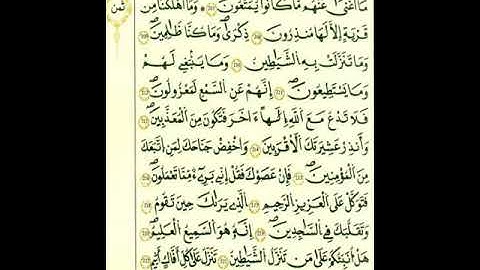 مَا أَغْنَىٰ عَنْهُم مَّا كَانُوا يُمَتَّعُونَ ۞ وَمَا أَهْلَكْنَا مِن
ثمن
قَرْيَةٍ إِلَّا لَهَا مُنذِرُونَ ذِكْرَىٰ وَمَا كُنَّا ظَالِمِينَ
وَمَا تَنَزَّلَتْ بِهِ الشَّيَاطِينُ وَمَا يَنبَغِي لَهُمْ
وَمَا يَسْتَطِيعُونَ إِنَّهُمْ عَنِ السَّمْعِ لَمَعْزُولُونَ
فَلَا تَدْعُ مَعَ اللَّهِ إِلَٰهًا آخَرَ فَتَكُونَ مِنَ الْمُعَذَّبِينَ
وَأَنذِرْ عَشِيرَتَكَ الْأَقْرَبِينَ وَاخْفِضْ جَنَاحَكَ لِمَنِ اتَّبَعَكَ
مِنَ الْمُؤْمِنِينَ فَإِنْ عَصَوْكَ فَقُلْ إِنِّي بَرِيءٌ مِّمَّا تَعْمَلُونَ
فَتَوَكَّلْ عَلَى الْعَزِيزِ الرَّحِيمِ الَّذِي يَرَاكَ حِينَ تَقُومُ
وَتَقَلُّبَكَ فِي السَّاجِدِينَ إِنَّهُ هُوَ السَّمِيعُ الْعَلِيمُ
هَلْ أُنَبِّئُكُمْ عَلَىٰ مَن تَنَزَّلُ الشَّيَاطِينُ تَنَزَّلُ عَلَىٰ كُلِّ أَفَّاكٍ أَثِيمٍ